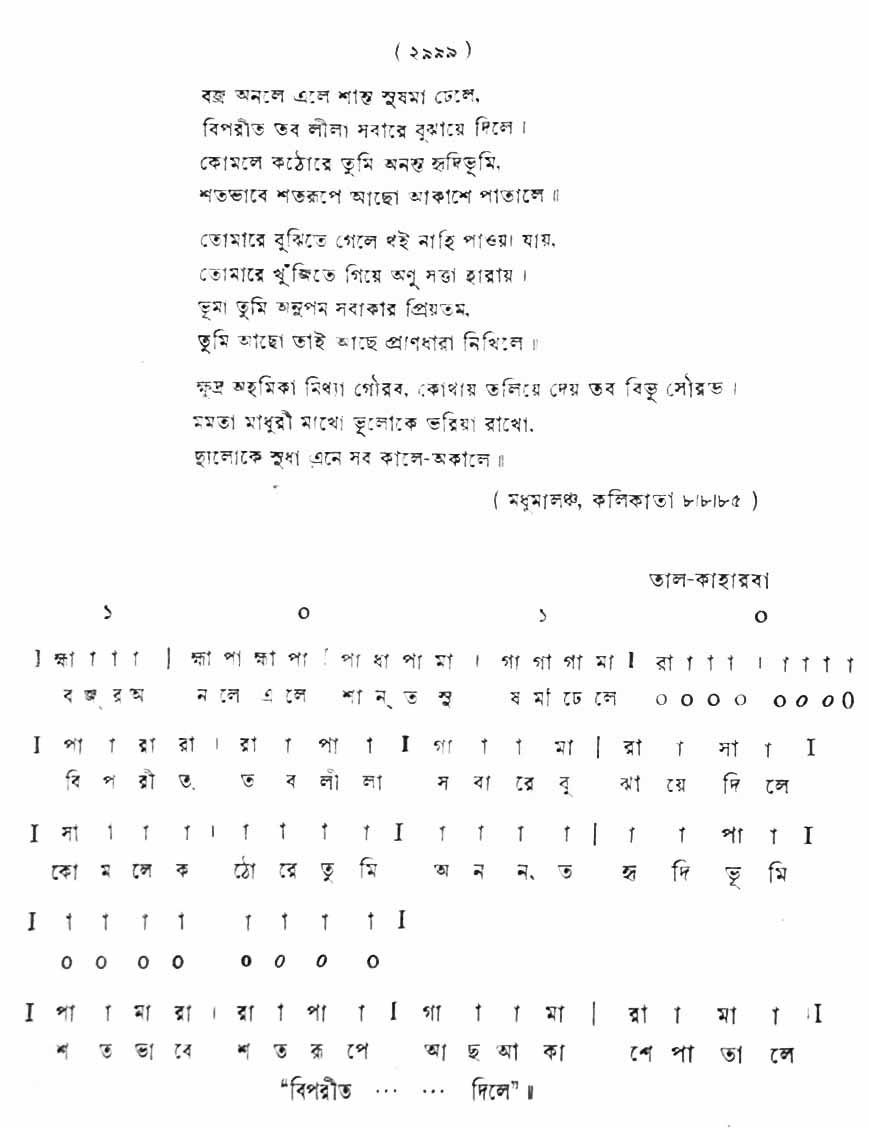 ( ২৯৯৯ )
বজ্র অনলে এলে শান্ত সুষমা ঢেলে,
বিপরীত তব লীলা সবারে বুঝায়ে দিলে ।
কোমলে কঠোরে তুমি অনন্ত হৃদিভূমি,
শতভাবে শতরূপে আছো আকাশে পাতালে ॥
তোমারে বুঝিতে গেলে থই নাহি পাওয়া যায়,
তোমারে খুঁজিতে গিয়ে অণু সত্তা হারায় ।
ভূমা তুমি অনুপম সবাকার প্রিয়তম,
তুমি আছো তাই আছে প্রাণধারা নিখিলে ॥
ক্ষুদ্র অহমিকা মিথ্যা গৌরব, কোথায় তলিয়ে দেয় তব বিভূ সৌরভ ।
মমতা মাধুরী মাখো ভূলোকে ভরিয়া রাখো,
দ্যুলোকে সুধা এনে সব কালে-অকালে ॥
( মধুমালঞ্চ, কলিকাতা ৮।৮।৮৫ )
তাল-কাহারবা
১ ০ ১ ০
I হ্মা া া া | হ্মা পা হ্মা পা I পা ধা পা মা । গা গা গা মা I রা া া া । া া া া
ব জ্ র অ ন লে এ লে শা ন্ ত সু ষ মা ঢে লে ০ ০ ০ ০ ০ ০ ০ ০
I পা া রা রা । রা া পা া I গা া া মা | রা া সা া I
বি প রী ত ত ব লী লা স বা রে বু ঝা য়ে দি লে
I সা া া া । া া া া I া া া া | া া পা া I
কো ম লে ক ঠো রে তু মি অ ন ন্ ত হৃ দি ভূ মি
I া া া া া া া া I
০ ০ ০ ০ ০ ০ ০ ০
I পা া মা রা । রা া পা া I গা া া মা | রা া মা া I
শ ত ভা বে শ ত রূ পে আ ছ আ কা শে পা তা লে
“বিপরীত ... ... দিলে” ॥